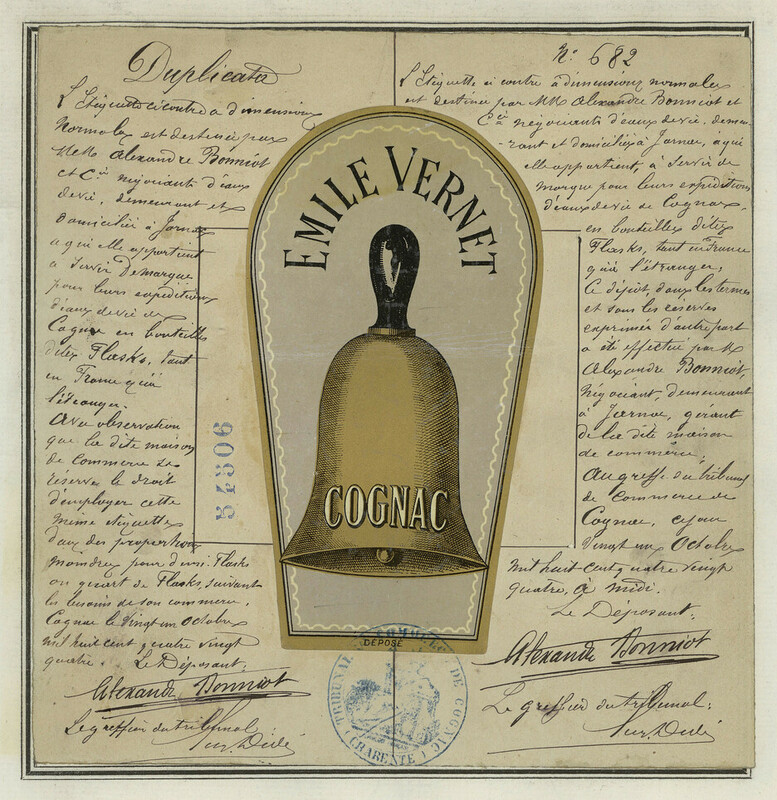 Duplicata
L'Etiquette ci contre a dimensions
normales est destinée par
MM. Alexandre Bonniot
et Cie négociants d'eaux
de vie, demeurant et
domiciliés à Jarnac
a qui elle appartient
a Servir De marque
pour leurs expéditions
d'eaux de vie de
Cognac en bouteilles
dites Flasks, tant
en France qu'à
l'étranger.
Avec observation
que la dite maison
de commerce se
réserve le droit
d'employer cette
même etiquette
dans des proportions
moindres pour demi-Flasks
ou quart de Flasks, suivant
les besoins de son commerce.
Cognac le vingt un Octobre
mil huit cent quatre vingt
quatre. Le Déposant,
Alexandre Bonniot
Le greffier du tribunal
EMILE VERNET
COGNAC
DÉPOSÉ
54306
TRIBUNAL DE COMMERCE DE COGNAC
(CHARENTE)
No 682
L'Etiquette ci contre a dimensions normales
est destinée par MM. Alexandre Bonniot et
Cie négociants d'eaux de vie, demeu
-rant et domiciliés à Jarnac, à qui
elle appartient, à Servir de
marque pour leurs expéditions
d'eaux de vie de Cognac
en bouteilles dites
Flasks, tant en France
qu'à l'étranger;
Ce dépôt dans les termes
et sous les réserves
exprimés d'autre part
a été effectué par M.
Alexandre Bonniot,
Négociant, demeurant
à Jarnac, gérant
de la dite maison
de commerce;
Au greffe du tribunal
de Commerce de
Cognac, ce jour
vingt un Octobre
mil huit cent quatre vingt
quatre, à midi.
Le Déposant,
Alexandre Bonniot
Le greffier du tribunal;